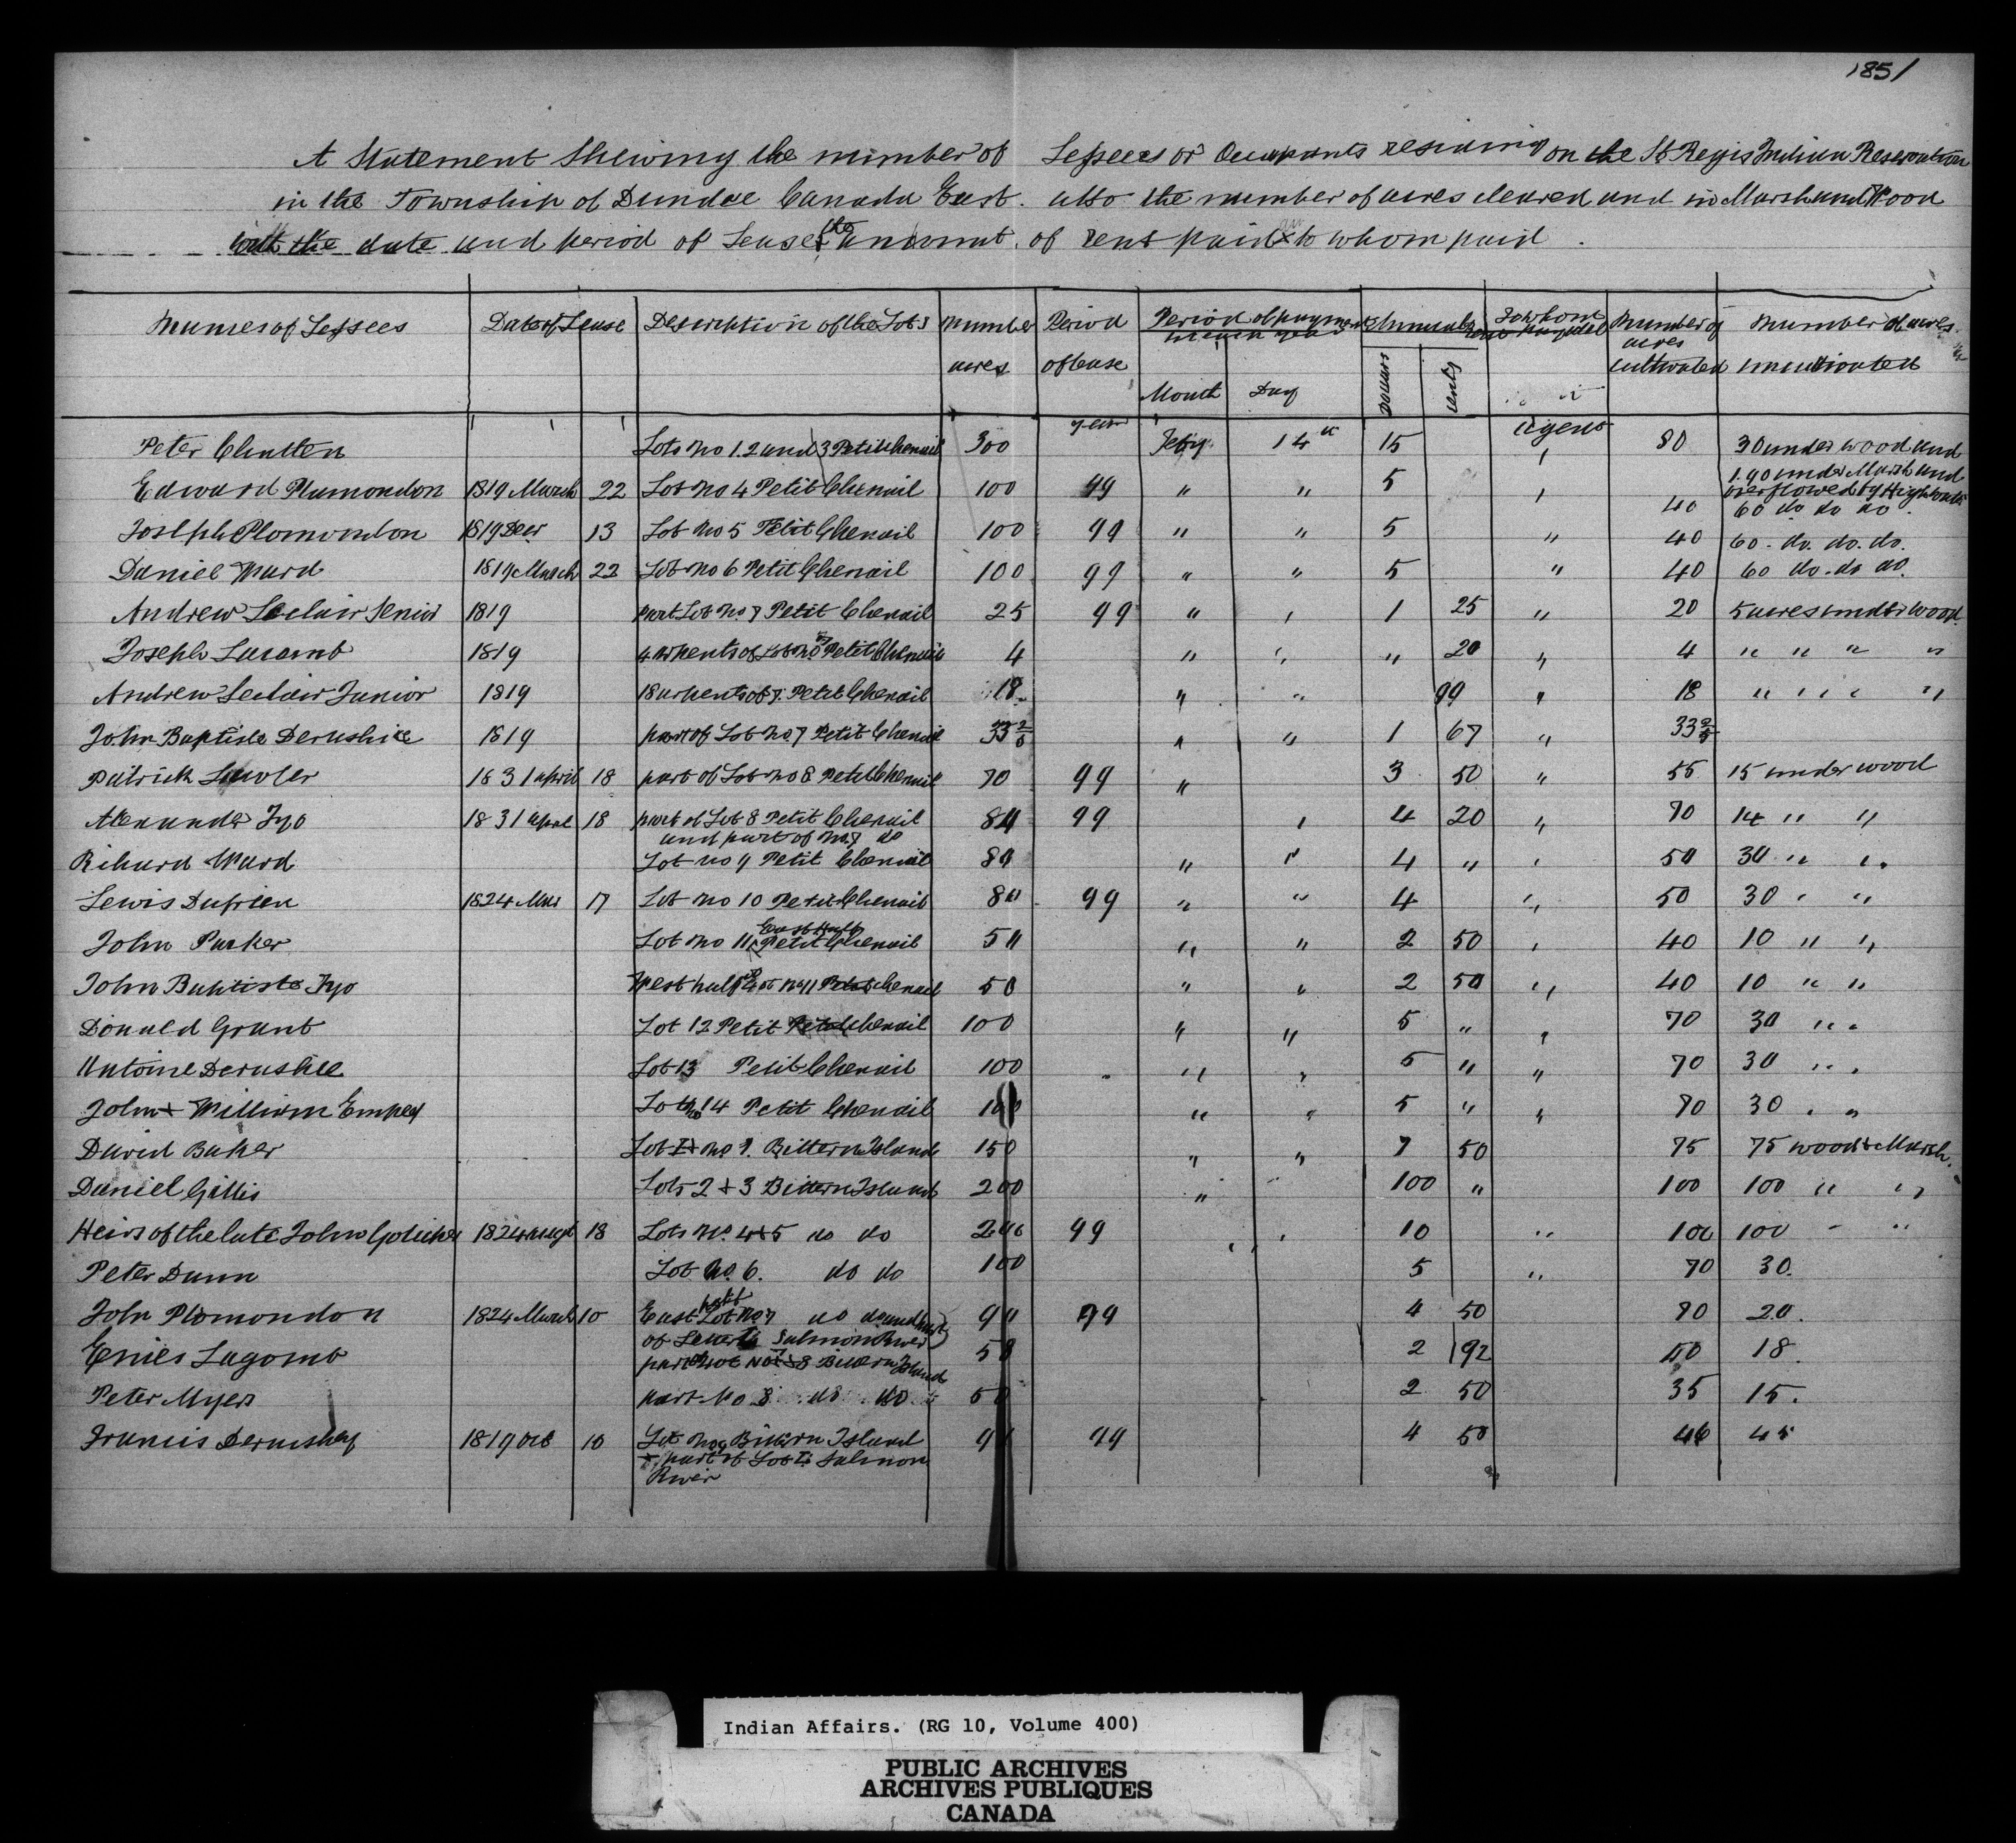 1851
A Statement Shewing the number of Lessees or Occupants residing on the St Regis Indian Reservation
in the Township of Dundee Canada East. also the number of acres cleared and in Marsh and Wood
with the date and period of Lease & the amount of rent paid & to whom paid.
Names of Lessees | Date of Lease | Description of the Lots | Number acres | Period of Lease | Period of payment in each year Month Day | Annual rent Dollars Cents | To whom payable | Number of acres cultivated | Number of acres uncultivated
Peter Chatten | Lots No 1.2 and 3 Petit Chenail | 300 | years | Feby | 14th | 15 | Agent | 80 | 30 under wood and
190 under Marsh and
overflowed by High water
Edward Plamondon | 1819 March | 22 | Lot No 4 Petit Chenail | 100 | 99 | " | " | 5 | " | 40 | 60 do do do.
Joseph Plomondon | 1819 Decr | 13 | Lot No 5 Petit Chenail | 100 | 99 | " | " | 5 | " | 40 | 60. do. do. do.
Daniel Ward | 1819 March | 22 | Lot No 6 Petit Chenail | 100 | 99 | " | " | 5 | " | 40 | 60 do. do do.
Andrew Leclair Senior | 1819 | part Lot No. 7 Petit Chenail | 25 | 99 | " | " | 1 | 25 | " | 20 | 5 acres under wood.
Joseph Lacomb | 1819 | 4 arpents of Lot No 7 Petit Chenail | 4 | " | " | " | 20 | " | 4 | " " " "
Andrew Leclair Junior | 1819 | 18 arpents of 7. Petit Chenail | 18 | " | " | 99 | " | 18 | " " " "
John Baptiste Derushie | 1819 | part of Lot No. 7 Petit Chenail | 33 | " | " | 1 | 67 | " | 33
Patrick Lawler | 1831 April | 18 | part of Lot No 8 Petit Chenail | 70 | 99 | " | 3 | 50 | " | 55 | 15 under wood
Alexander Fyo | 1831 April | 18 | part of Lot 8 Petit Chenail | 84 | 99 | " | 4 | 20 | " | 70 | 14 " "
and part of No. 7 do
Richard Ward | Lot No 9 Petit Chenail | 80 | " | " | 4 | " | " | 50 | 30 " "
Lewis Dufrien | 1824 Mar | 17 | Lot No 10 Petit Chenail | 80 | 99 | " | " | 4 | " | 50 | 30 " "
John Parker | Lot No 11 East Half Petit Chenail | 50 | " | " | 2 | 50 | " | 40 | 10 " "
John Baptiste Fyo | West half of Lot No 11 Petit Chenail | 50 | " | " | 2 | 50 | " | 40 | 10 " "
Donald Grant | Lot 12 Petit Chenail | 100 | " | " | 5 | " | " | 70 | 30 " "
Antoine Derushie | Lot 13 Petit Chenail | 100 | " | " | 5 | " | " | 70 | 30 " "
John & William Empey | Lot No 14 Petit Chenail | 100 | " | " | 5 | " | " | 70 | 30 " "
David Baker | Lot No 1. Bittern Island | 150 | " | " | 7 | 50 | 75 | 75 wood & Marsh.
Daniel Gillis | Lots 2 & 3 Bittern Island | 200 | " | 100 | " | 100 | 100 " "
Heirs of the late John | 1824 Augt | 18 | Lots No. 4 & 5 do do | 200 | 99 | " | " | 10 | " | 100 | 100 " "
Peter Dunn | Lot No. 6. do do | 100 | 5 | " | 70 | 30.
John Plomondon | 1824 March | 10 | East half Lot No 7 do do and part | 90 | 99 | 4 | 50 | 70 | 20.
of Salmon River
Lagomb | part of Lot No 7 & 8 Bittern Island | 58 | 2 | 92 | 40 | 18.
Peter Myers | part No 8 do do | 50 | 2 | 50 | 35 | 15.
Francis Derushay | 1819 Oct | 10 | Lot No 9 Bittern Island | 99 | 4 | 50 | 45
& part of Lot Salmon
River
Indian Affairs. (RG 10, Volume 400)
PUBLIC ARCHIVES
ARCHIVES PUBLIQUES
CANADA